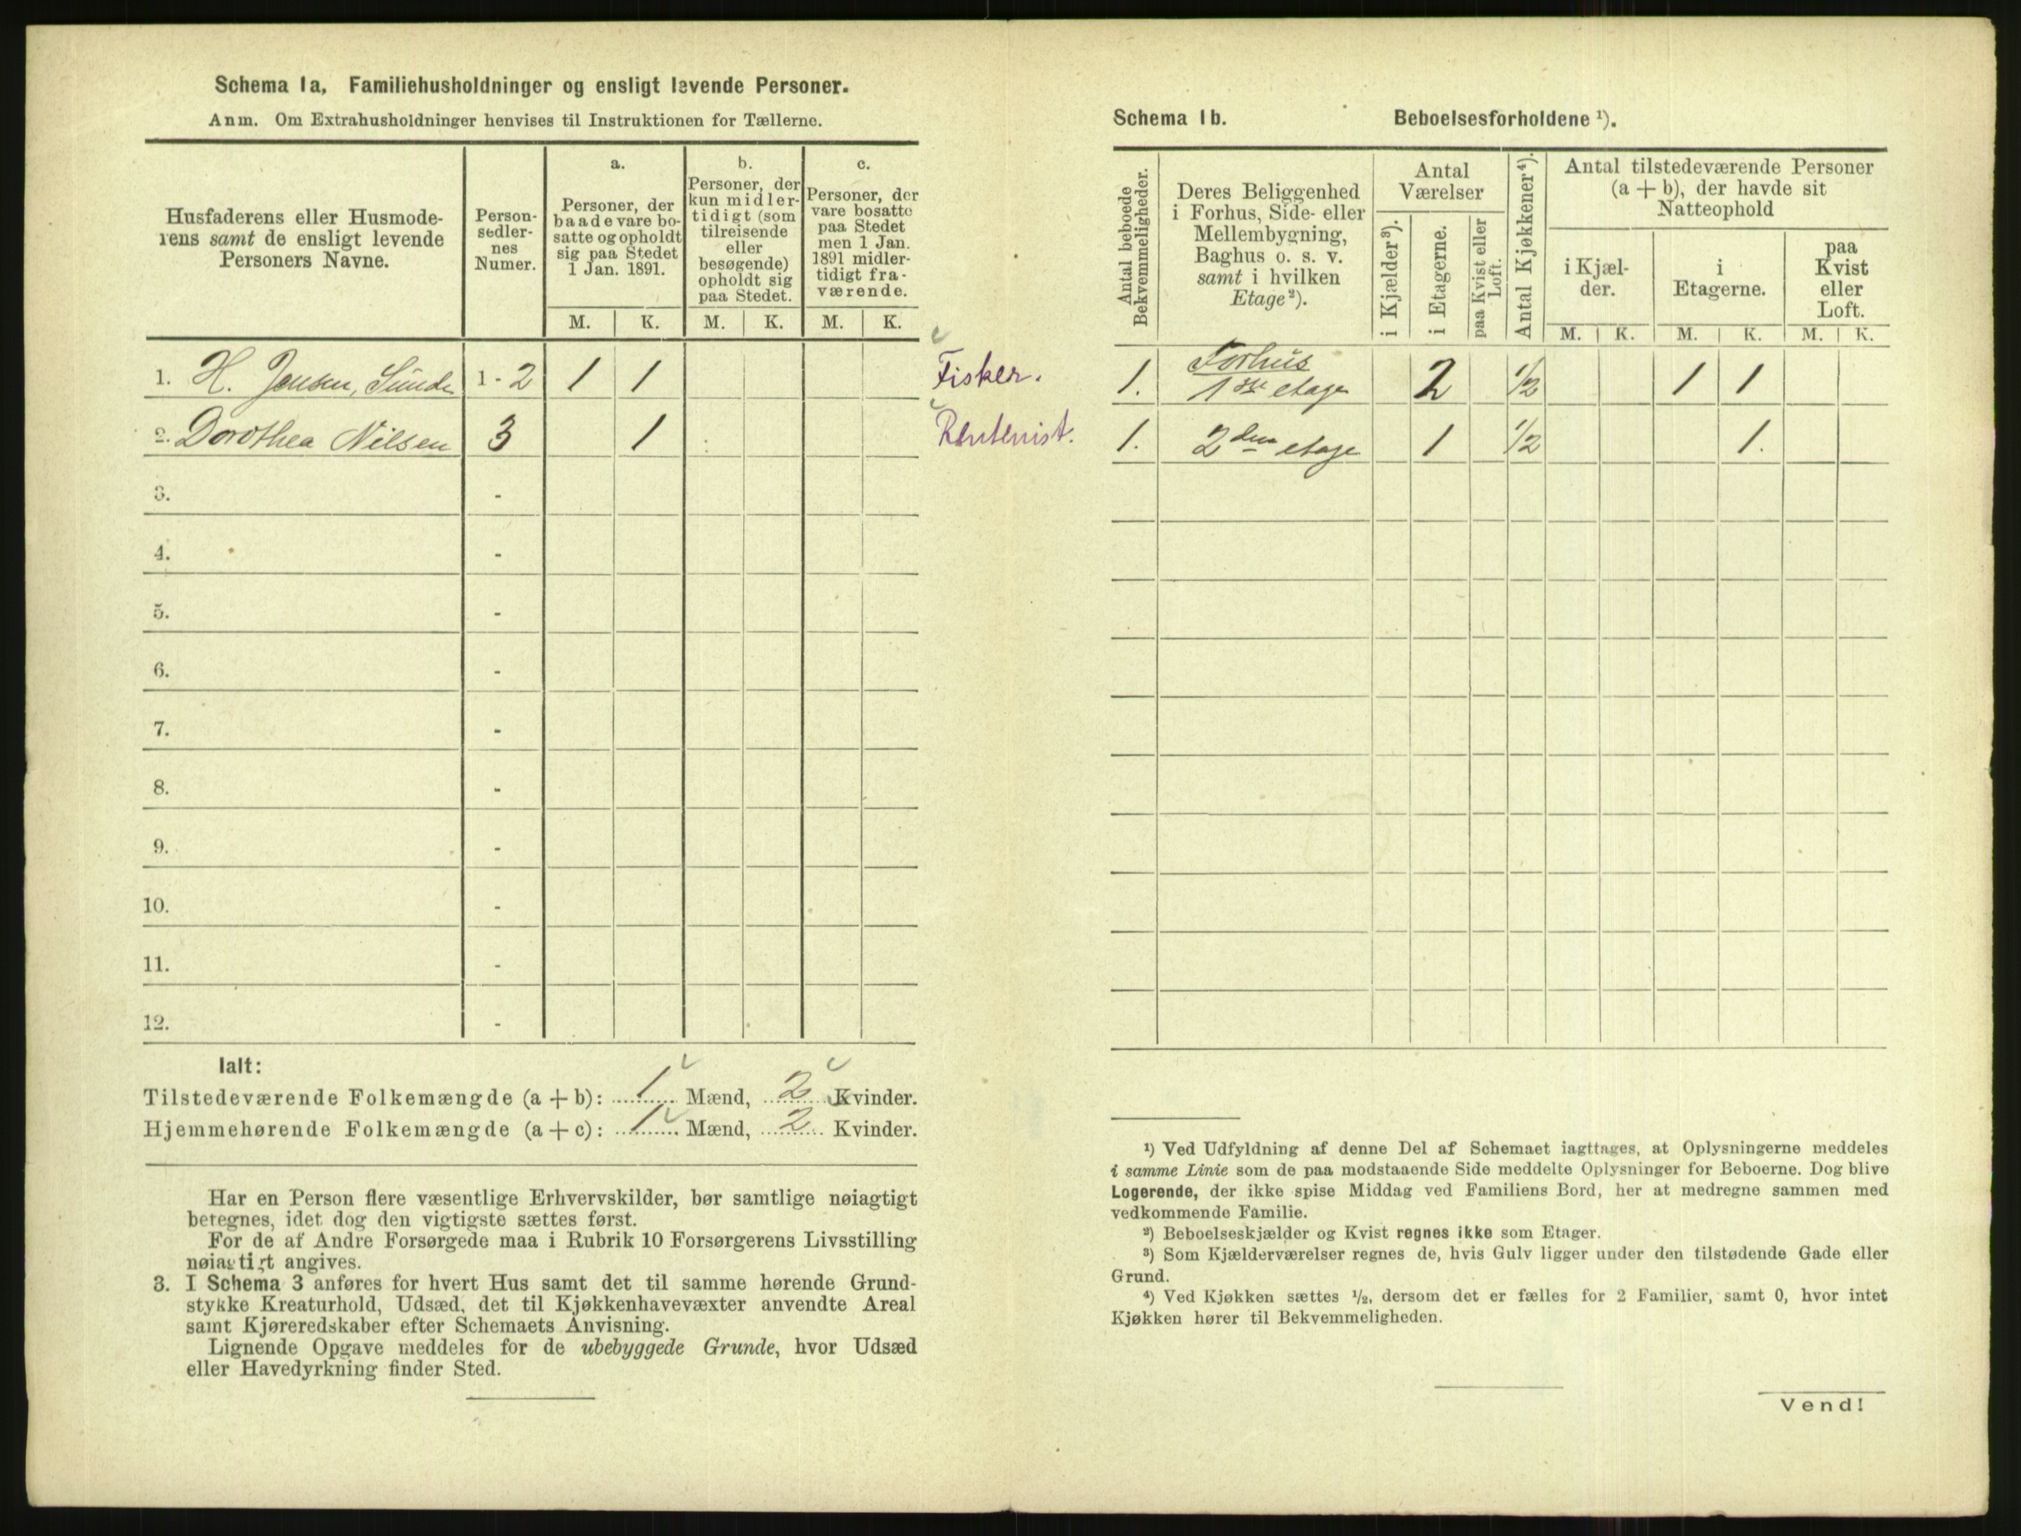 Schema 1a, Familiehusholdninger og ensligt levende Personer.
Anm. Om Extrahusholdninger henvises til Instruktionen for Tællerne.
Husfaderens eller Husmode-
rens samt de ensligt levende
Personers Navne.
Person-
sedler-
nes
Numer.
a.
Personer, der
baade vare bo-
satte og opholdt
sig paa Stedet
1 Jan. 1891.
b.
Personer, der
kun midler-
tidigt (som
tilreisende
eller
besøgende)
opholdt sig
paa Stedet.
c.
Personer, der
vare bosatte
paa Stedet
men 1 Jan.
1891 midler-
tidigt fra-
værende.
M. K. M. K. M. K.
1. H. Jensen, Sunde 1 - 2 1 1 Fisker.
2. Dorothea Nilsen 3 1 Rentenist.
3. -
4. -
5. -
6. -
7. -
8. -
9. -
10. -
11. -
12. -
Ialt:
Tilstedeværende Folkemængde (a + b): 1 Mænd, 2 Kvinder.
Hjemmehørende Folkemængde (a + c): 1 Mænd, 2 Kvinder.
Har en Person flere væsentlige Erhvervskilder, bør samtlige nøiagtigt
betegnes, idet dog den vigtigste sættes først.
For de af Andre Forsørgede maa i Rubrik 10 Forsørgerens Livsstilling
nøiagtigt angives.
3. I Schema 3 anføres for hvert Hus samt det til samme hørende Grund-
stykke Kreaturhold, Udsæd, det til Kjøkkenhavevæxter anvendte Areal
samt Kjøreredskaber efter Schemaets Anvisning.
Lignende Opgave meddeles for de ubebyggede Grunde, hvor Udsæd
eller Havedyrkning finder Sted.
Schema 1b. Beboelsesforholdene ¹).
Antal beboede
Bekvemmeligheder.
Deres Beliggenhed
i Forhus, Side- eller
Mellembygning,
Baghus o. s. v.
samt i hvilken
Etage²).
Antal
Værelser
i Kjælder³).
i Etagerne.
paa Kvist eller
Loft.
Antal Kjøkkener⁴).
Antal tilstedeværende Personer
(a + b), der havde sit
Natteophold
i Kjæl-
der.
i
Etagerne.
paa
Kvist
eller
Loft.
M. K. M. K. M. K.
1. Forhus
1ste etage 2 1/2 1 1
1. 2den etage 1 1/2 1.
¹) Ved Udfyldning af denne Del af Schemaet iagttages, at Oplysningerne meddeles
i samme Linie som de paa modstaaende Side meddelte Oplysninger for Beboerne. Dog blive
Logerende, der ikke spise Middag ved Familiens Bord, her at medregne sammen med
vedkommende Familie.
²) Beboelseskjælder og Kvist regnes ikke som Etager.
³) Som Kjælderværelser regnes de, hvis Gulv ligger under den tilstødende Gade eller
Grund.
⁴) Ved Kjøkken sættes ¹/₂, dersom det er fælles for 2 Familier, samt 0, hvor intet
Kjøkken hører til Bekvemmeligheden.
Vend!